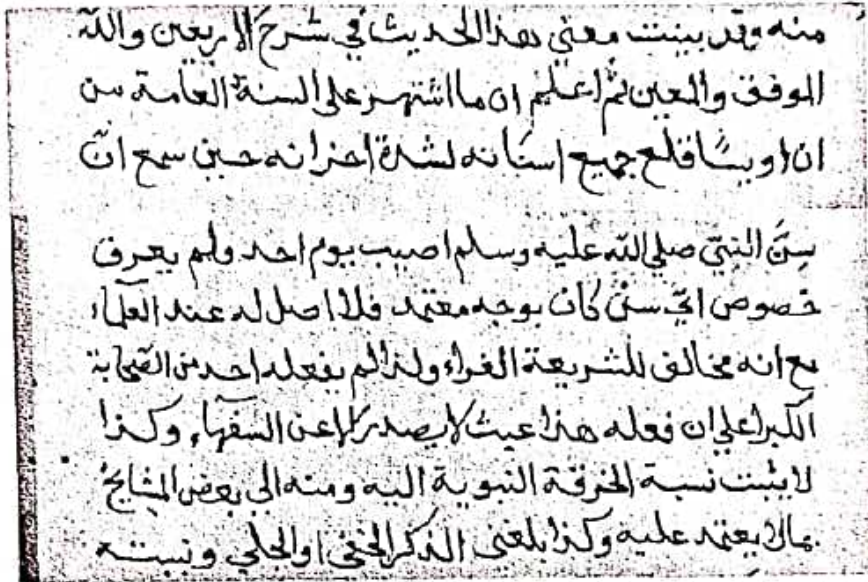 منه وقد بينت معنى هذا الحديث في شرح الاربعين والله
الموفق والمعين ثم اعلم ان ما اشتهر على السنة العامة من
ان اويسًا قلع جميع اسنانه لشدة احزانه حين سمع انّ
سنّ النبيّ صلى الله عليه وسلم اصيب يوم احد ولم يعرف
خصوص ايّ سنّ كان بوجه معتمد فلا اصل له عند العلماء
مع انه مخالف للشريعة الغراء ولذا لم يفعله احد من الصحابة
الكبراء على ان فعله هذا عبث لا يصدر الا عن السفهاء وكذا
لا يثبت نسبة الخرقة النبوية اليه ومنه الى بعض المشايخ
مما لا يعتمد عليه وكذا بلغني الذكر الخفي او الجلي ونسبته